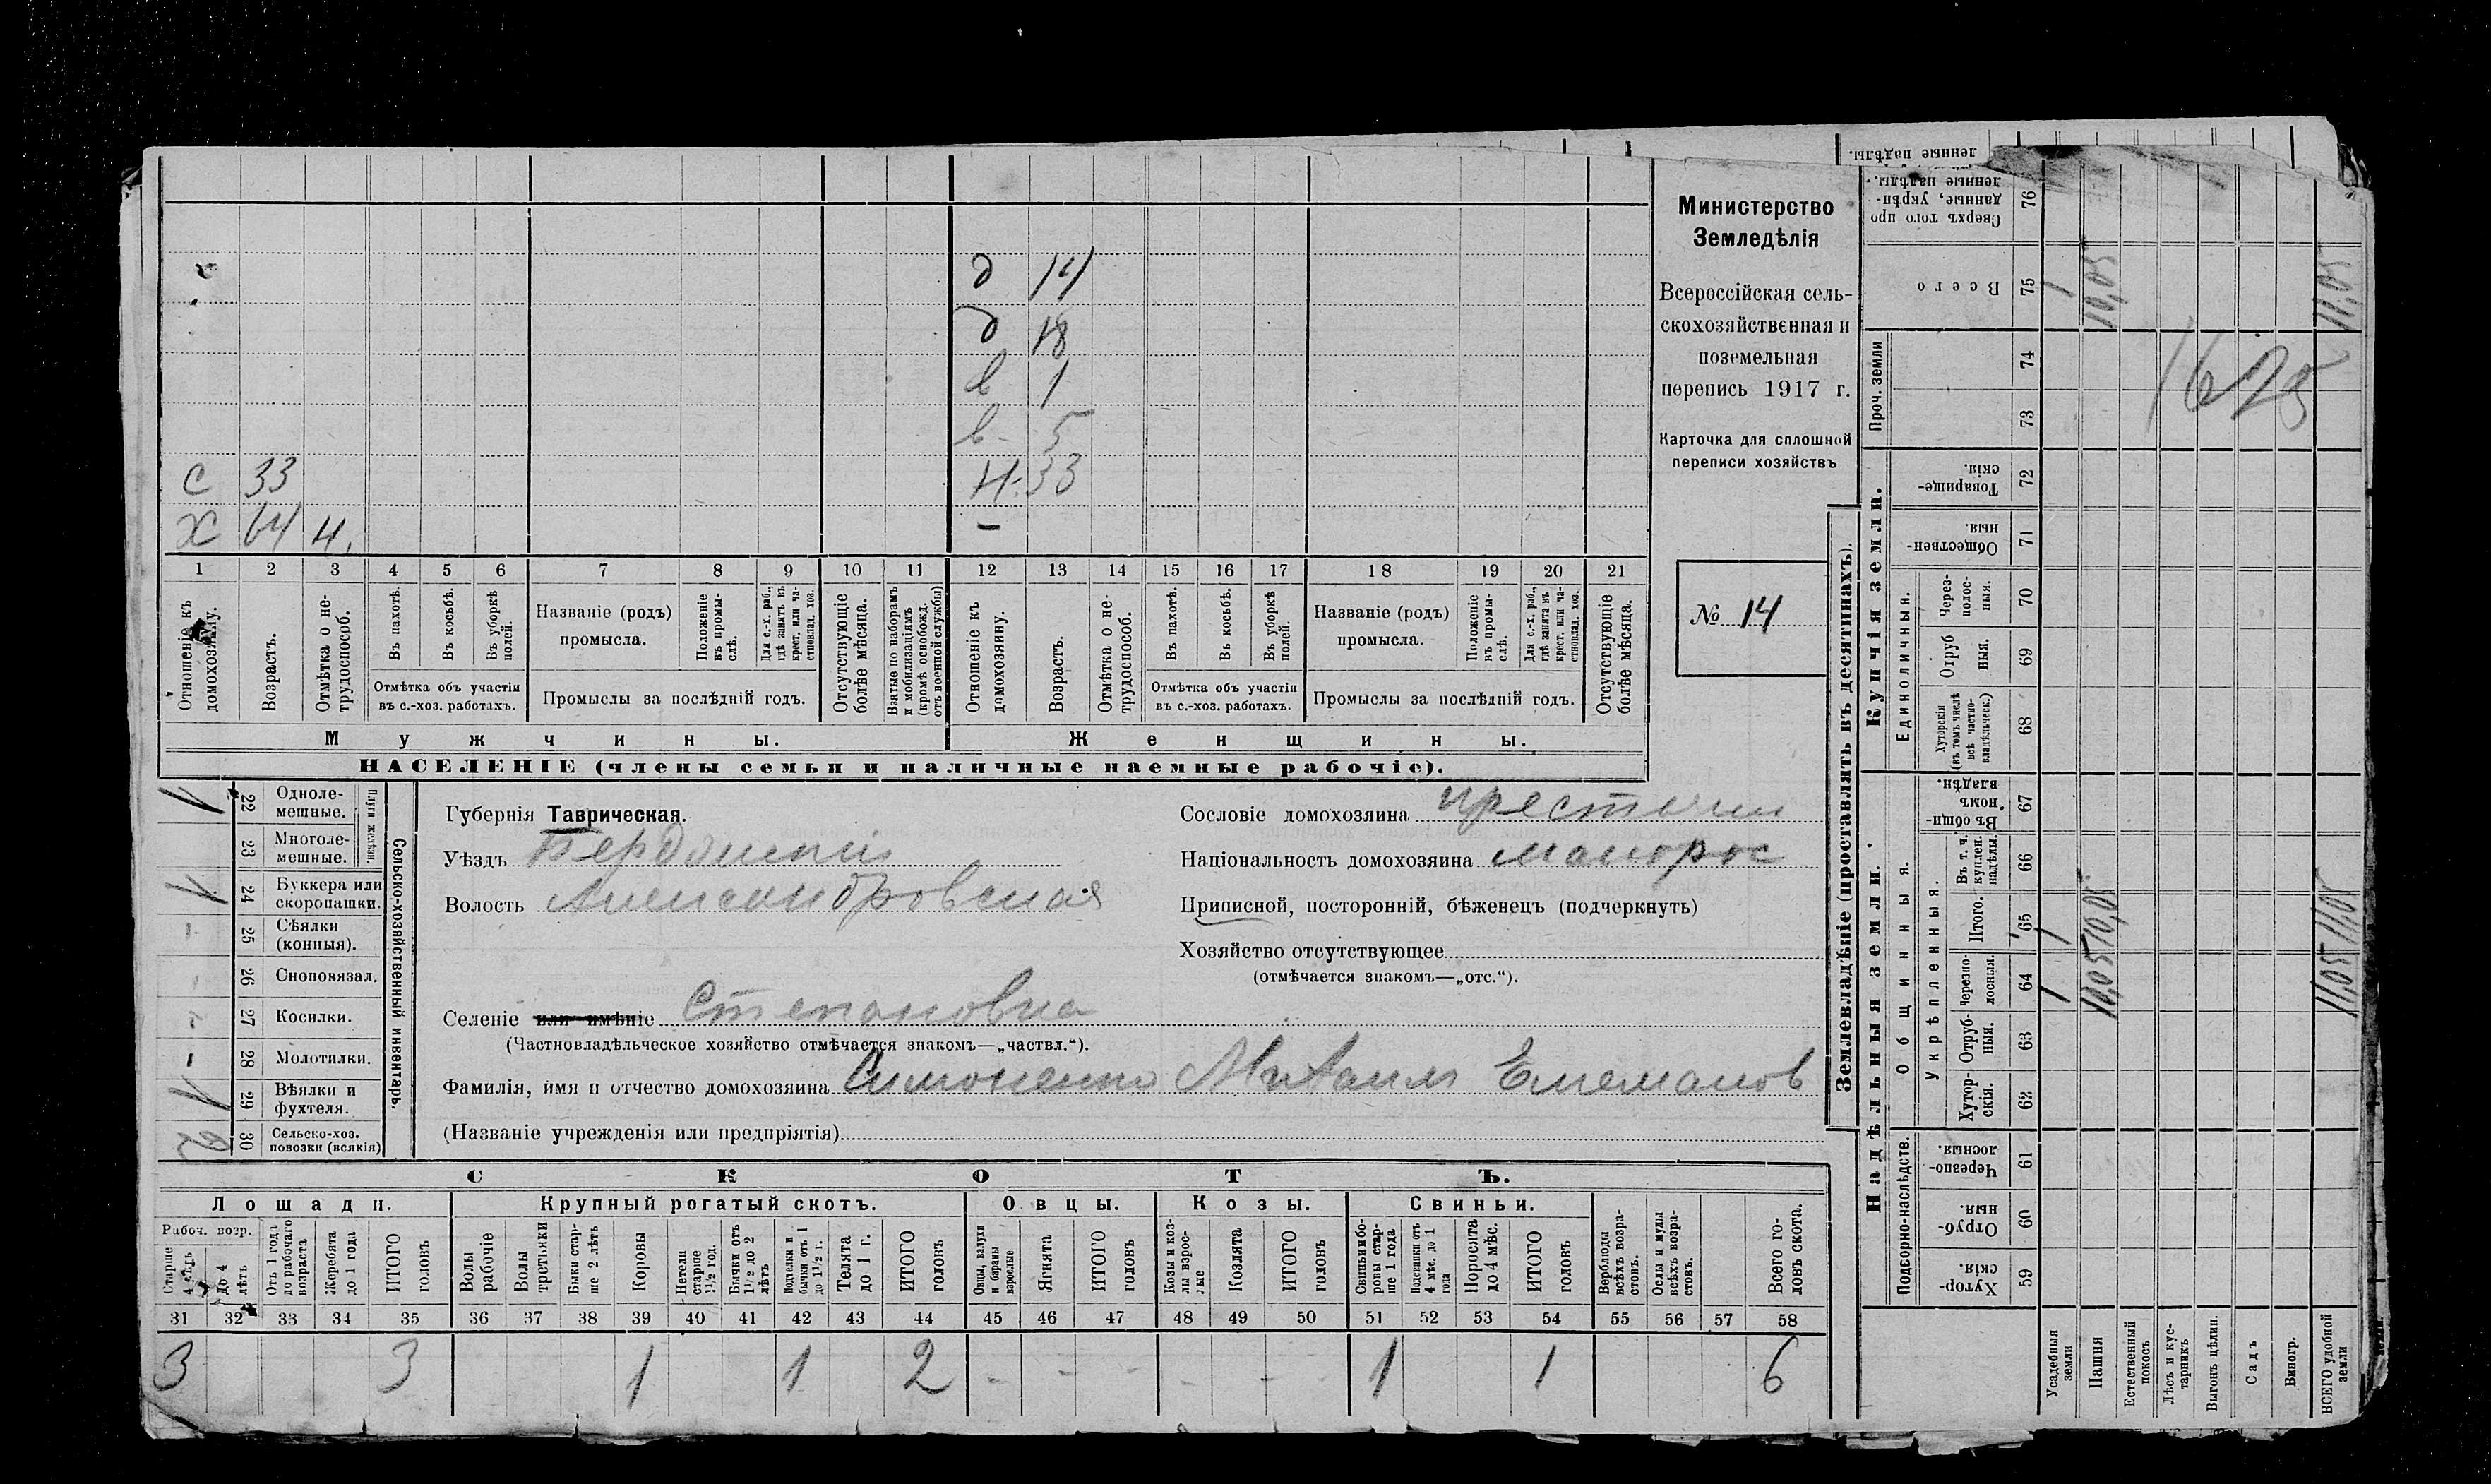 д 14
д 18
в 1
в 5
С 33 Н. 33
Х 64 н. –
1 2 3 4 5 6 7 8 9 10 11 12 13 14 15 16 17 18 19 20 21
Отношеніе къ домохозяину.
Возрастъ.
Отмѣтка о не-трудоспособ.
Въ пахотѣ.
Въ косьбѣ.
Въ уборкѣ полей.
Отмѣтка объ участіи въ с.-хоз. работахъ.
Названіе (родъ) промысла.
Положеніе въ промы-слѣ.
Для с.-х. раб., гдѣ занятъ въ крест. или ча-стновлад. хоз.
Промыслы за послѣдній годъ.
Отсутствующіе болѣе мѣсяца.
Взятые по наборамъ и мобилизаціямъ (кромѣ освобожд. отъ военной службы)
Отношеніе къ домохозяину.
Возрастъ.
Отмѣтка о не-трудоспособ.
Въ пахотѣ.
Въ косьбѣ.
Въ уборкѣ полей.
Отмѣтка объ участіи въ с.-хоз. работахъ.
Названіе (родъ) промысла.
Положеніе въ промы-слѣ.
Для с.-х. раб., гдѣ занята въ крест. или ча-стновлад. хоз.
Промыслы за послѣдній годъ.
Отсутствующіе болѣе мѣсяца.
Мужчины. Женщины.
НАСЕЛЕНІЕ (члены семьи и наличные наемные рабочіе).
Министерство
Земледѣлія
Всероссійская сель-
скохозяйственная и
поземельная
перепись 1917 г.
Карточка для сплошной
переписи хозяйствъ
№ 14
22 Одноле-мешные.
23 Многоле-мешные.
Плуги желѣзн.
24 Буккера или скоропашки.
25 Сѣялки (конныя).
26 Сноповязал.
27 Косилки.
28 Молотилки.
29 Вѣялки и фухтеля.
30 Сельско-хоз. повозки (всякія)
2
Сельско-хозяйственный инвентарь.
Губернія Таврическая.
Уѣздъ Бердянскій
Волость Александровская
Селеніе или имѣніе Степановка
(Частновладѣльческое хозяйство отмѣчается знакомъ—„частвл.“).
Сословіе домохозяина крестьян
Національность домохозяина малорос
Приписной, посторонній, бѣженецъ (подчеркнуть)
Хозяйство отсутствующее
(отмѣчается знакомъ—„отс.“).
Фамилія, имя и отчество домохозяина Симоненко Михаилъ Емельянов
(Названіе учрежденія или предпріятія)
СКОТЪ.
Лошади. Крупный рогатый скотъ. Овцы. Козы. Свиньи.
Рабоч. возр.
Старше 4 лѣтъ
До 4 лѣтъ
Отъ 1 года до рабочаго возраста
Жеребята до 1 года
ИТОГО головъ
Волы рабочіе
Волы третьяки
Быки стар-ше 2 лѣтъ
Коровы
Нетели старше 1½ год.
Бычки отъ 1½ до 2 лѣтъ
Подтелки и бычки отъ 1 до 1½ г.
Телята до 1 г.
ИТОГО головъ
Овцы, валухи и бараны взрослые
Ягнята
ИТОГО головъ
Козы и коз-лы взрос-лые
Козлята
ИТОГО головъ
Свиньи и бо-ровы стар-ше 1 года
Подсвинки отъ 4 мѣс. до 1 года
Поросята до 4 мѣс.
ИТОГО головъ
Верблюды всѣхъ возра-стовъ.
Ослы и мулы всѣхъ возра-стовъ.
Всего го-ловъ скота.
31 32 33 34 35 36 37 38 39 40 41 42 43 44 45 46 47 48 49 50 51 52 53 54 55 56 57 58
3 3 1 1 2 - - - - - - 1 1 6
Землевладѣніе (проставлять въ десятинахъ).
Надѣльныя земли.
Купчія земли.
Проч. земли
Подворно-наслѣдств.
Общинныя.
Укрѣпленныя.
Единоличныя.
Хутор-скія. 59
Отруб-ныя. 60
Черезпо-лосныя. 61
Хутор-скія. 62
Отруб-ныя. 63
Черезпо-лосныя. 64
Итого. 65
Въ т. ч. куплен. надѣлы. 66
Въ общи-номъ владѣн. 67
Хуторскія (въ томъ числѣ всѣ частно-владѣльческ.) 68
Отруб ныя. 69
Через-полос-ныя. 70
Обществен-ныя. 71
Товарище-скія. 72
73
74
Всего 75
Сверхъ того про данные, укрѣп-ленные надѣлы. 76
ленные надѣлы.
Усадебныя земли 1 1 1
Пашня 10,05 10,05 10,05
Естественный покосъ
Лѣсъ и кус-тарникъ
Выгонъ цѣлин.
Садъ
Виногр.
ВСЕГО удобной земли 11,05 11,05 11,05
1625